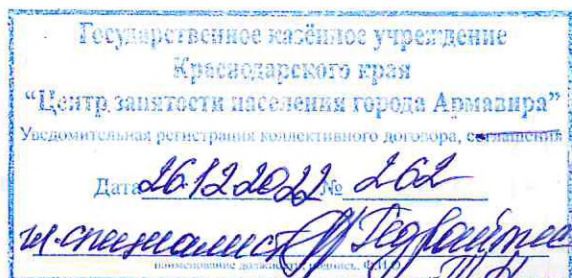 Государственное казённое учреждение
Краснодарского края
“Центр занятости населения города Армавира”
Уведомительная регистрация коллективного договора, соглашения
Дата 26.12.2022 № 262
гл. специалист
наименование должности, подпись, Ф.И.О.